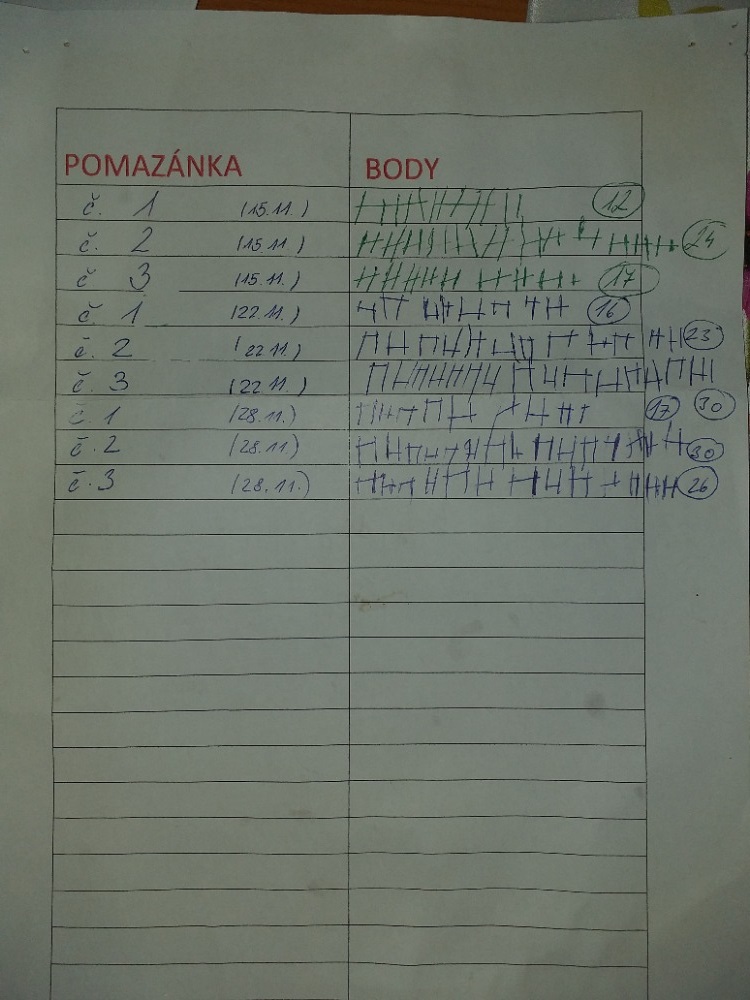 POMAZÁNKA BODY
č. 1 (15.11.) 12
č. 2 (15.11) 24
č 3 (15.11.) 17
č. 1 (22.11.) 16
č. 2 (22 11.) 23
č. 3 (22.11.) 30
č. 1 (28.11.) 17
č. 2 (28.11) 30
č. 3 (28.11.) 26